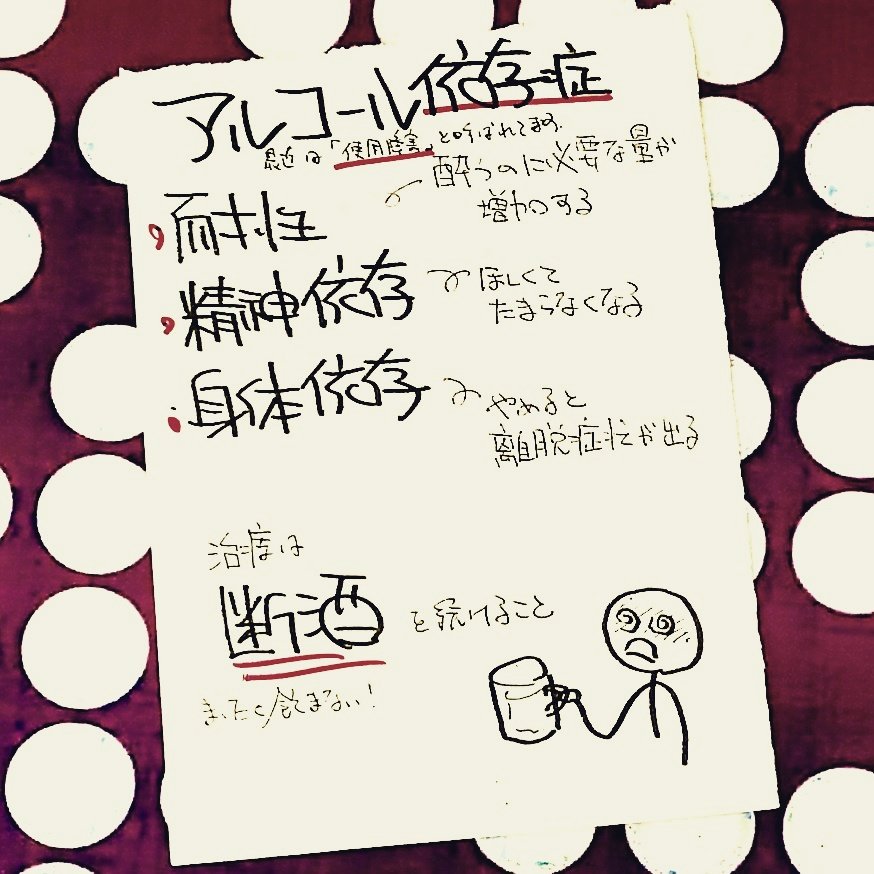 アルコール依存症
最近は「使用障害」と呼ばれてます.
・耐性
酔うのに必要な量が
増加する
・精神依存
ほしくて
たまらなくなる
・身体依存
やめると
離脱症状が出る
治療は
断酒を続けること
まったく飲まない!